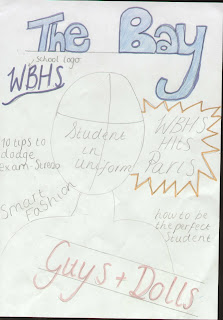 The Bay
School logo
WBHS
Student
in
uniform
WBHS
Hits
Paris
10 tips to
dodge
Exam Stress
Smart
Fashion
how to be
the perfect
Student
Guys + Dolls